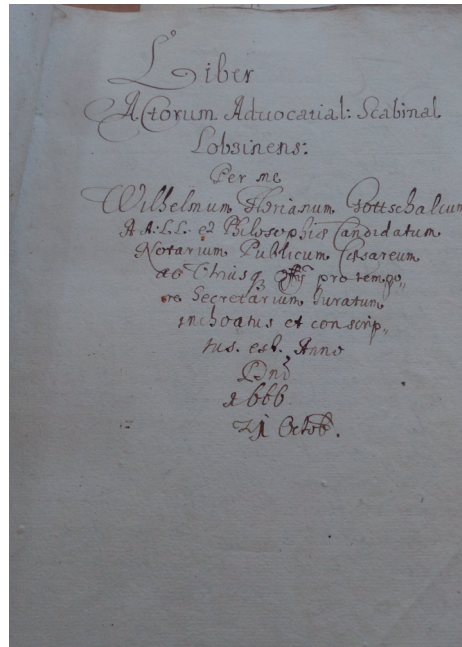 Liber
Actorum Advocatial: Scabinal
Lobsinens:
Per me
Wilhelmum Florianum Gottschalcum
A A: L L: et Philosophiæ Candidatum
Notarium Publicum Cæsareum
ac pro tempo,,
re Secretarium Juratum
inchoatus et conscrip,,
tus. est. Anno
Dni
1666.
21 Octob.